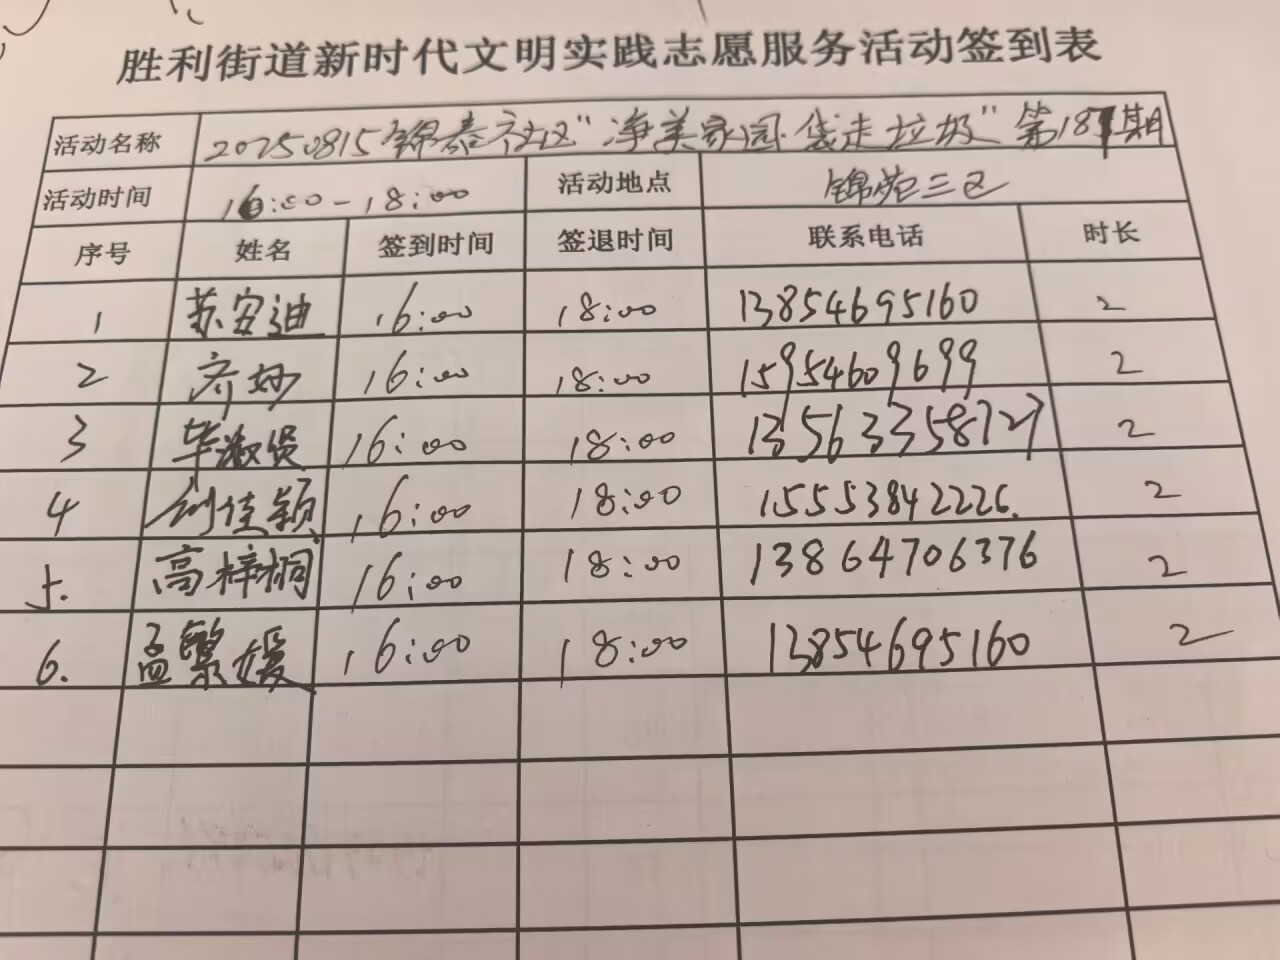 胜利街道新时代文明实践志愿服务活动签到表
活动名称 20250815锦泰社区"净美家园·袋走垃圾"第187期
活动时间 16:00-18:00 活动地点 锦苑三区
序号 姓名 签到时间 签退时间 联系电话 时长
1 苏安迪 16:00 18:00 13854695160 2
2 齐妙 16:00 18:00 15954609699 2
3 毕淑贤 16:00 18:00 2
4 刘佳颖 16:00 18:00 15553842226. 2
5. 高梓桐 16:00 18:00 13864706376 2
6. 孟繁媛 16:00 18:00 13854695160 2